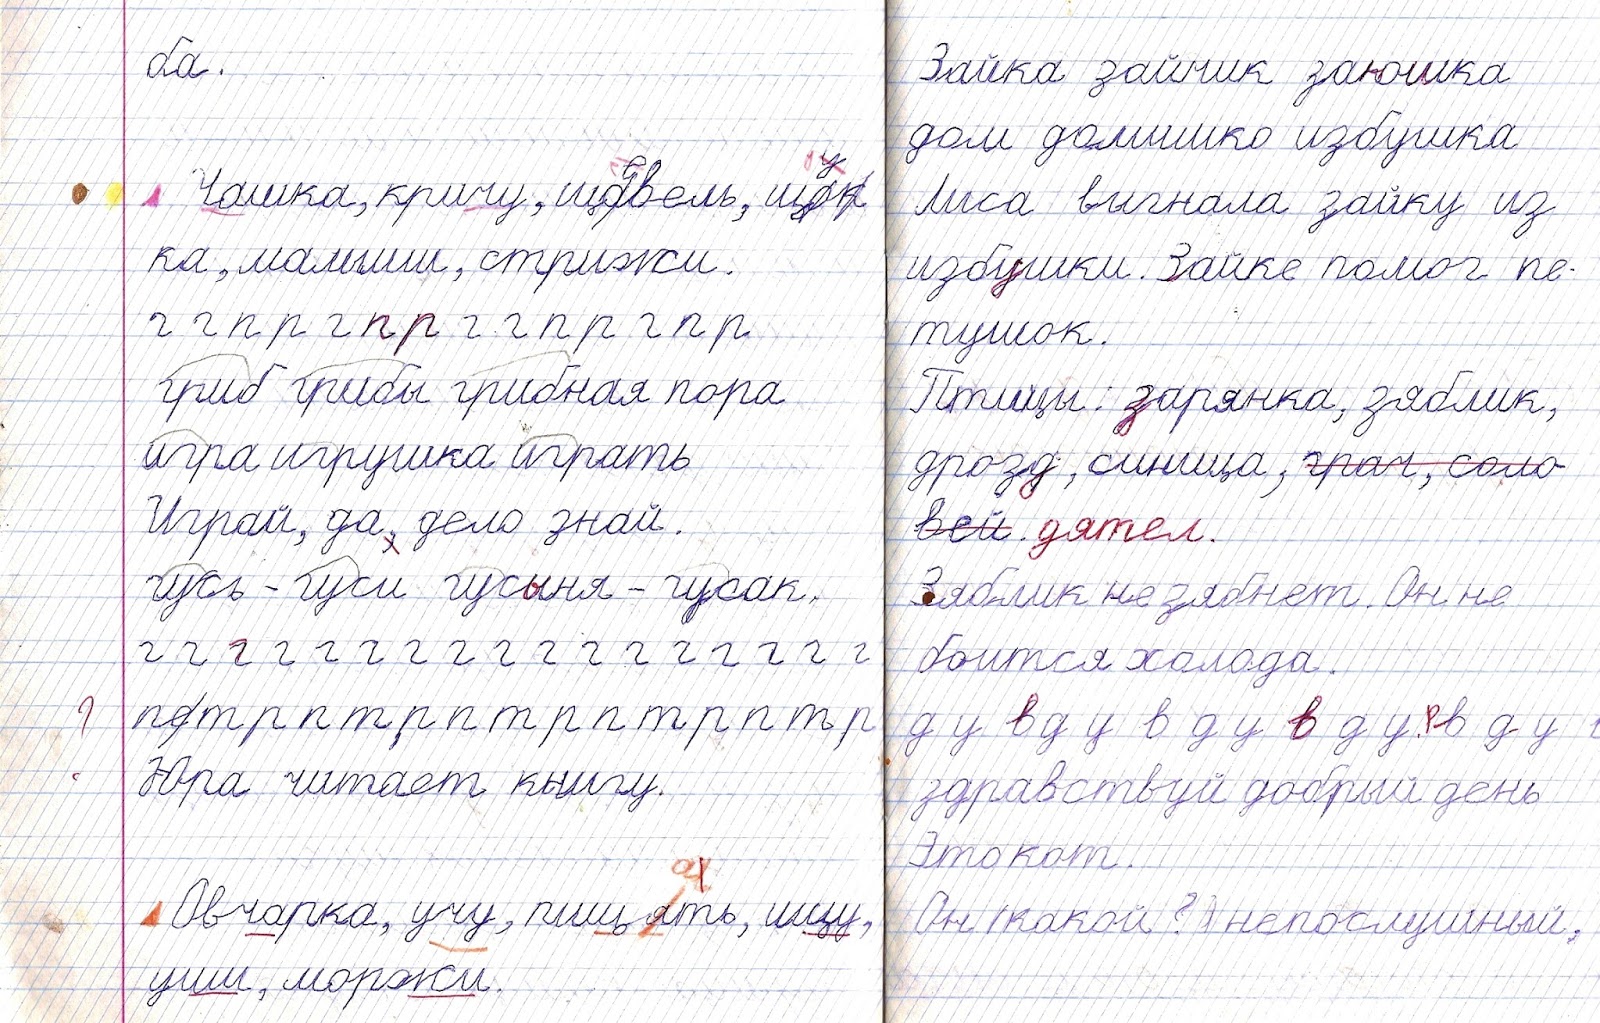 ба.
Чашка, кричу, щавель, щу
ка, малыши, стрижи.
г г п р г п р г г п р г п р
гриб грибы грибная пора
игра игрушка играть
Играй, да, дело знай.
гусь - гуси гусыня - гусак,
г г г г г г г г г г г г г г г г г
п т р п т р п т р п т р п т р
Юра читает книгу.
Овчарка, учу, пищать, ищу,
уши, моржи.
Зайка зайчик заюшка
дом домишко избушка
Лиса выгнала зайку из
избушки. Зайке помог пе-
тушок.
Птицы: зарянка, зяблик,
дрозд, синица, грач, соло
вей. дятел.
Зяблик не зябнет. Он не
боится холода.
д у в д у в д у в д у в д у
здравствуй добрый день
Это кот.
Он (какой?) непослушный,